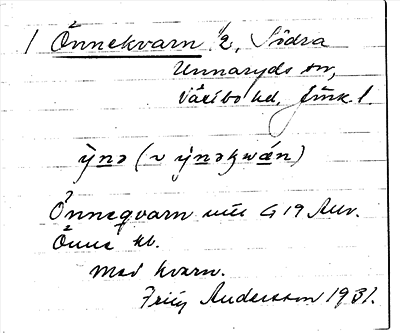 1 Önnekvarn 1/2, Södra
Unnaryds sn,
Västbo hd, Jönk. l.
ỳnə (~ ỳnəkwǽn)
Önneqvarn G 19 Auv.
Önne kv.
med kvarn.
Fritz Andersson 1931.